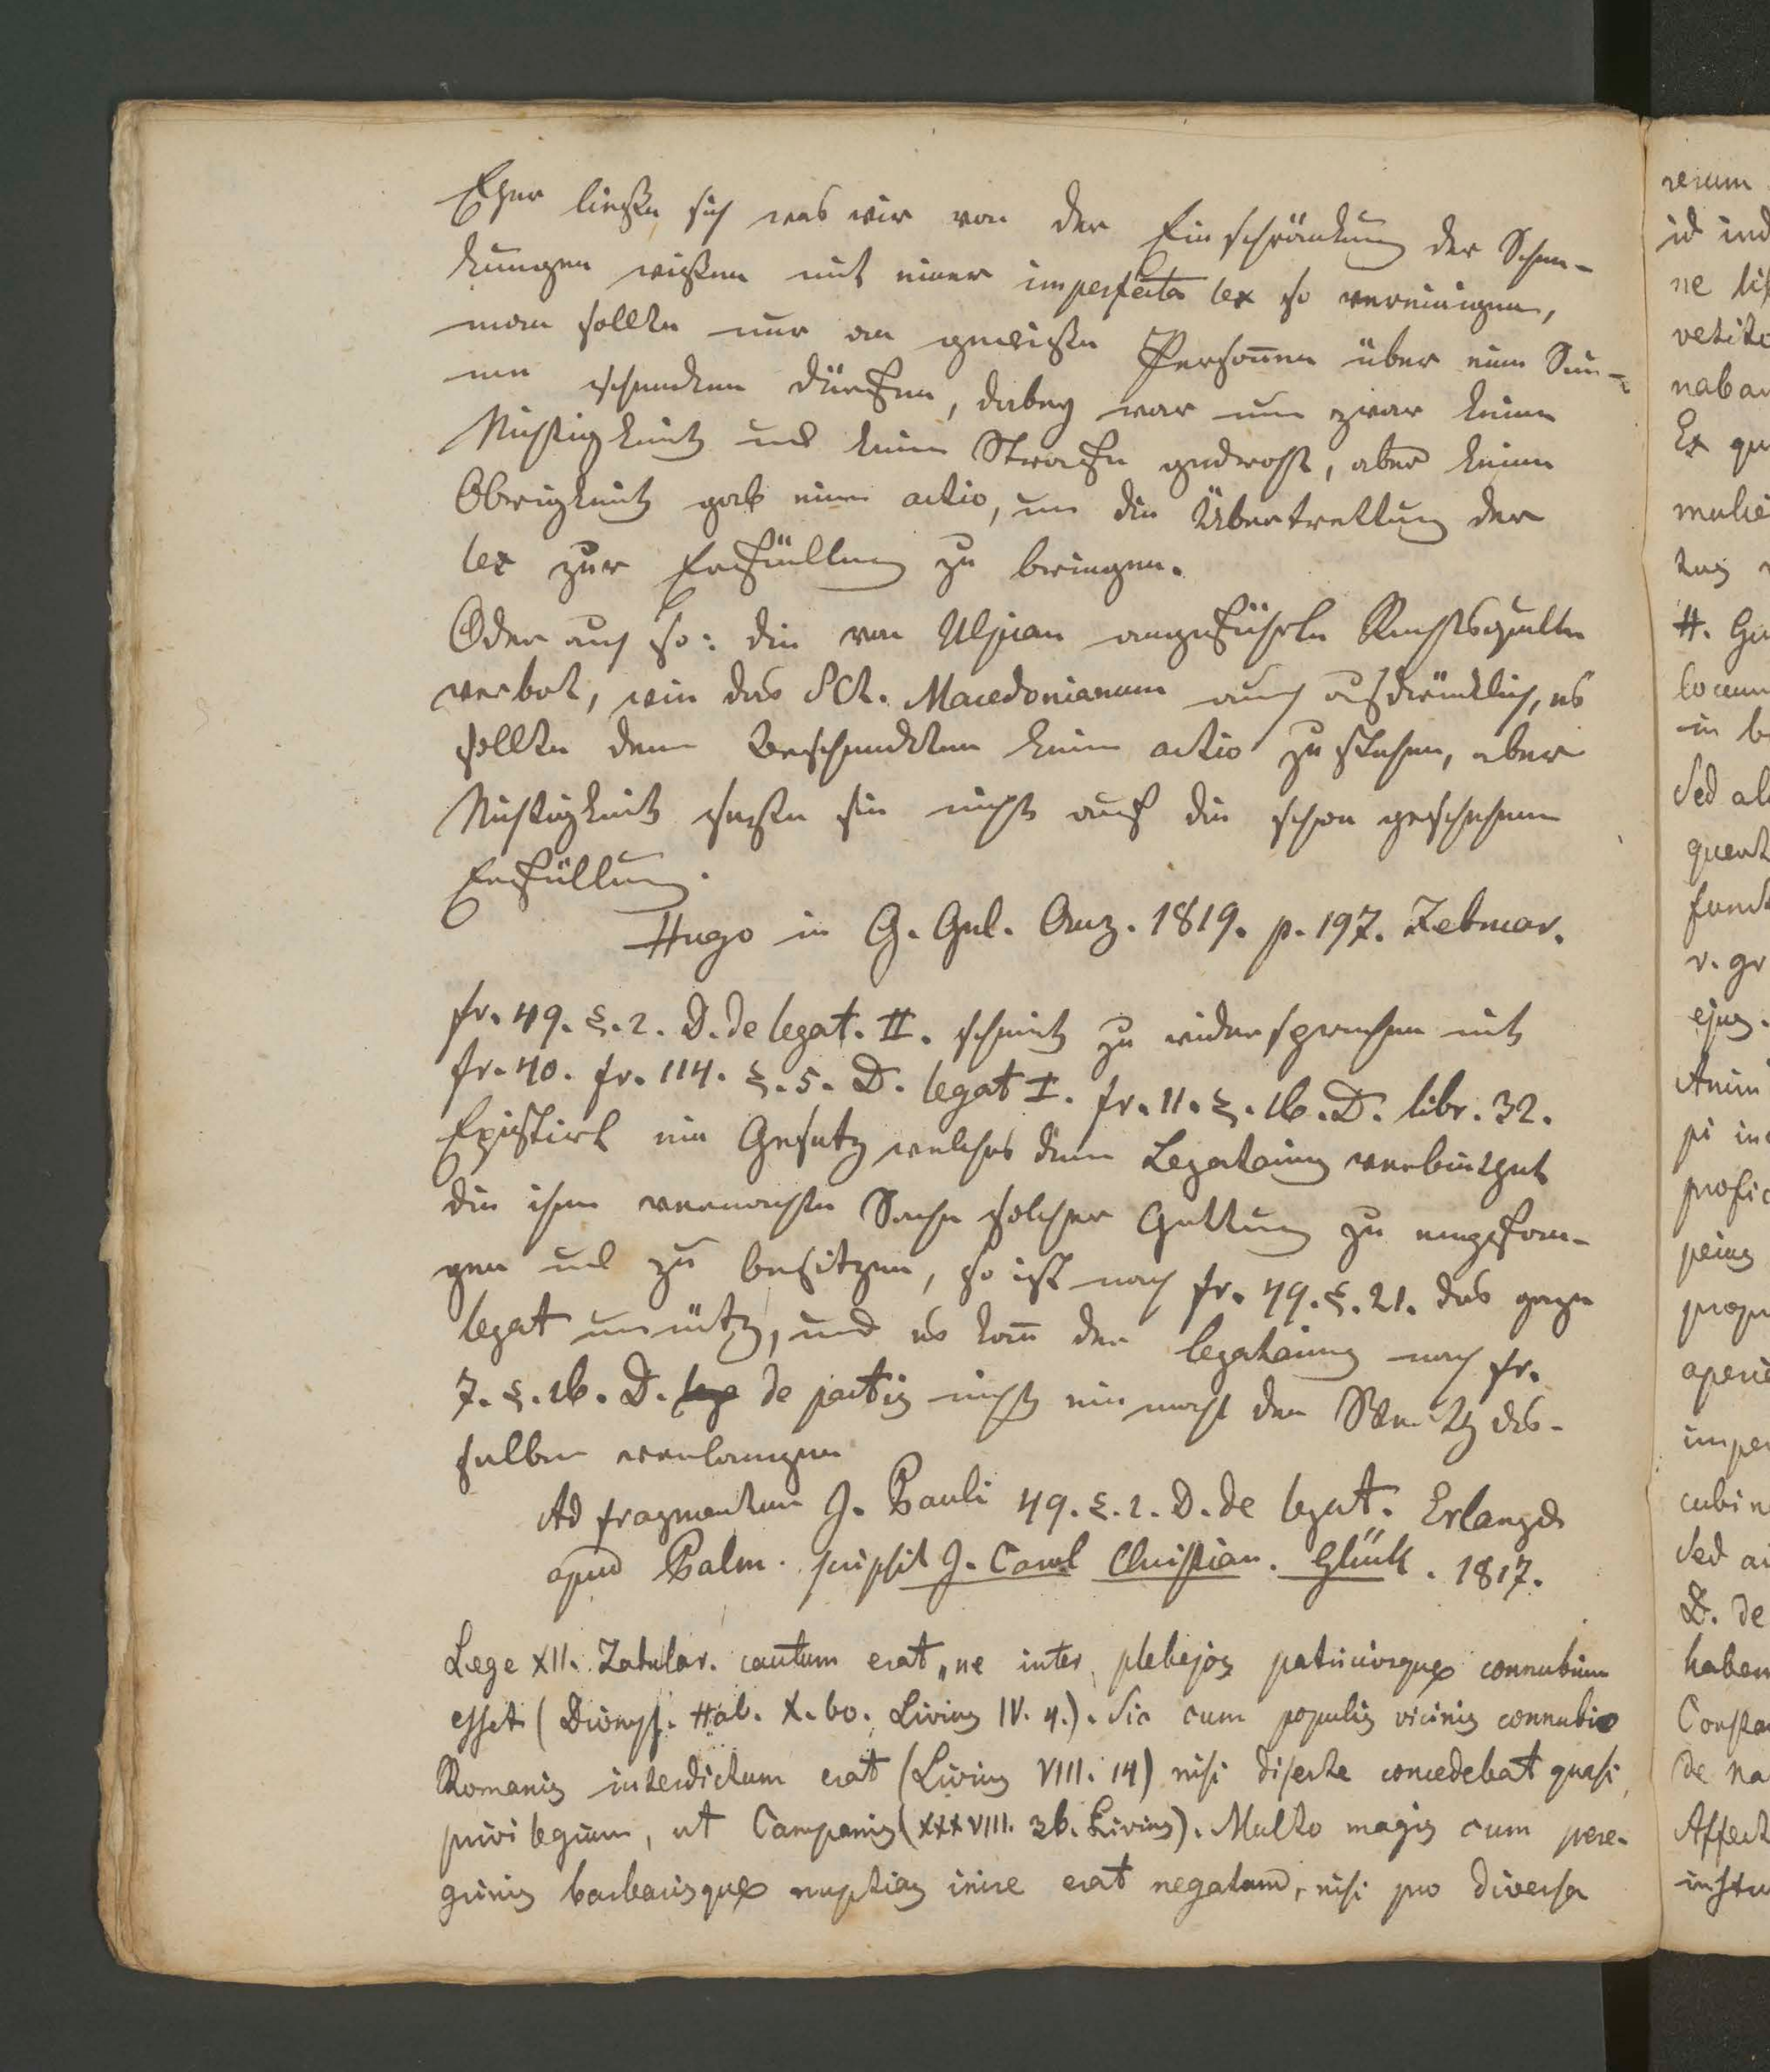 Eher ließe sich was wir von der Einschränkung der Schen-
kungen wißen mit einer imperfecta lex so vereinigen,
man sollte nur an gewiße Personen über eine Sum-
me schenken dürfen, dabey war nun zwar keine
Nichtigkeit und keine Strafe gedroht, aber keine
Obrigkeit gab eine actio, um die Übertrettung der
lex zur Erfüllung zu bringen.
Oder auch so: die von Ulpian angeführte Rechtsquelle
verbot, wie das SCt. Macedonianum auch ausdrücklich, es
sollte dem Beschenkten keine actio zu stehen, aber
Nichtigkeit setzte sie nicht auf die schon geschehene
Erfüllung.
Hugo in G. Gel. Anz. 1819. p. 197. Februar.
fr. 49. §. 2. D. de legat. II. scheint zu widersprechen mit
fr. 40. fr. 114. §. 5. D. legat I. fr. 11. §. 16. D. libr. 32.
Existirt ein Gesetz welches dem Legatarius verbietet
die ihm vermachte Sache solcher Gattung zu empfan-
gen und zu besitzen, so ist nach fr. 49. §. 21. das ganze
legat unnütz, und es kann der legatarius nach fr.
7. §. 16. D. de pactis nicht ein mahl den Werth des-
selben verlangen
Ad fragmentum J. Pauli 49. §. 2. D. de legat. Erlangae
apud Palm. scripsit J. Carol Christian. Glück. 1817.
Lege XII. Tabular. cautum erat, ne inter plebejos patriciosque connubium
esset (Dionys. Hal. X. 60. Livius IV. 4.). Sic cum populis vicinis connubio
Romanis interdictum erat (Livius VIII. 14) nisi diserte concedebat quasi
privilegium, ut Campanis (XXXVIII. 36. Livius). Multo magis cum pere-
grinis barbarisque nuptias inire erat negatum, nisi pro diversa
rerum
id ind
ne
vetito
naban
Ex qu
mulie
tus
H.
locum
in b
Sed al
quent
funct
v. gr
ejus.
Anim
pi in
profic
peius
propr
aperi
imper
cubin
Sed a
D. de
haben
Consta
de na
Affect
instu